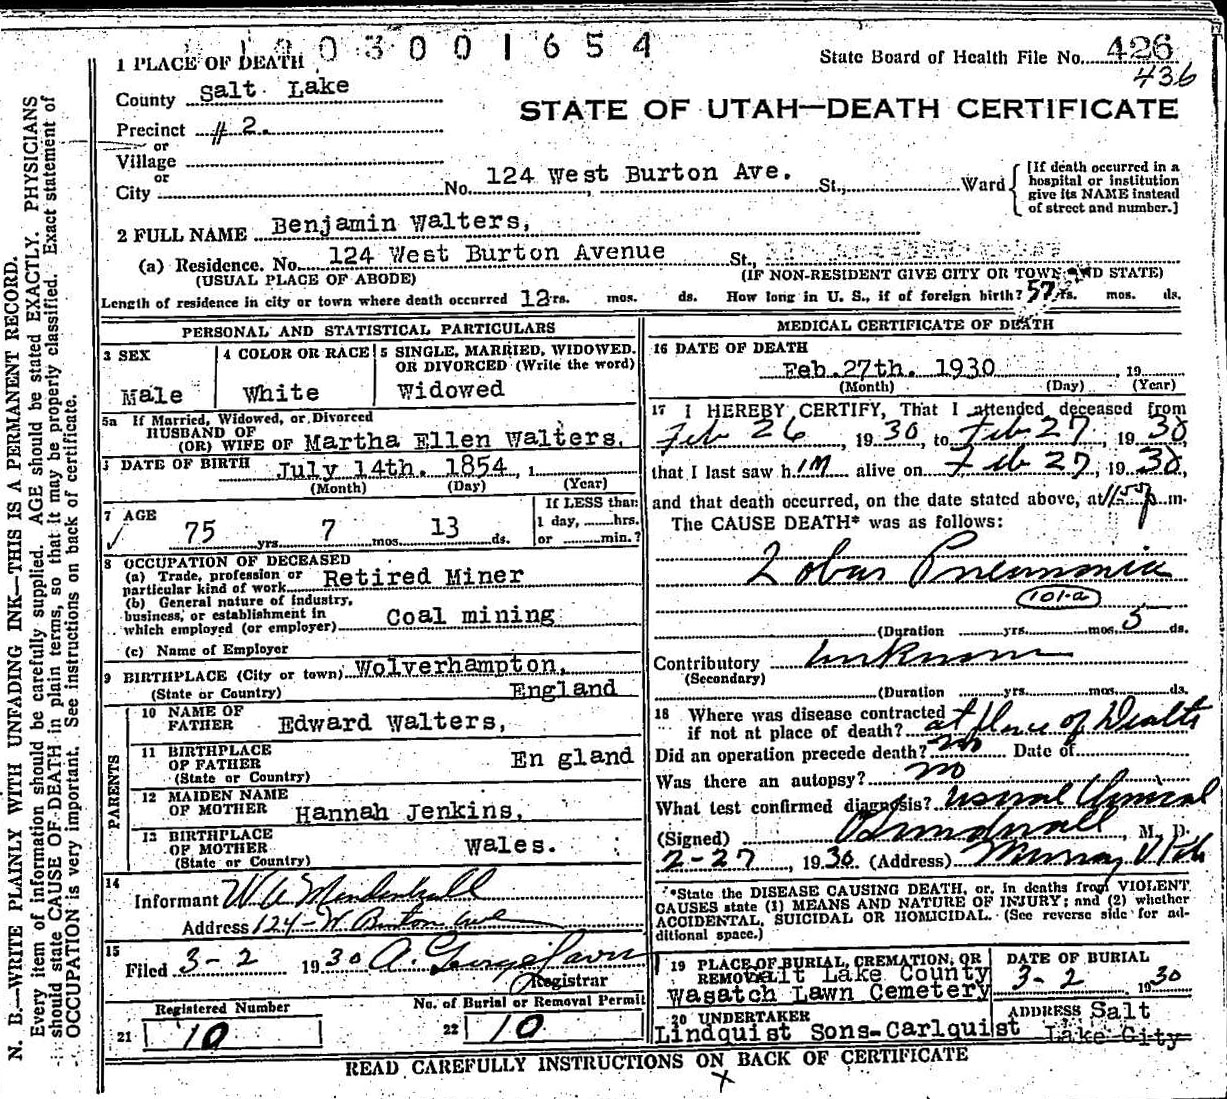 1 9 3 0 0 3 0 0 1 6 5 4
State Board of Health File No. 426
436
1 PLACE OF DEATH
County Salt Lake
STATE OF UTAH—DEATH CERTIFICATE
Precinct #2.
or
Village
or
City No. 124 West Burton Ave. St., Ward
[If death occurred in a hospital or institution give its NAME instead of street and number.]
2 FULL NAME Benjamin Walters,
(a) Residence. No. 124 West Burton Avenue St.,
(USUAL PLACE OF ABODE) (IF NON-RESIDENT GIVE CITY OR TOWN AND STATE)
Length of residence in city or town where death occurred 12 yrs. mos. ds. How long in U. S., if of foreign birth? 57 yrs. mos. ds.
PERSONAL AND STATISTICAL PARTICULARS
3 SEX
Male
4 COLOR OR RACE
White
5 SINGLE, MARRIED, WIDOWED.
OR DIVORCED (Write the word)
Widowed
5a If Married, Widowed, or Divorced
HUSBAND OF
(OR) WIFE OF Martha Ellen Walters.
DATE OF BIRTH July 14th. 1854, 1
(Month) (Day) (Year)
7 AGE
75 yrs. 7 mos. 13 ds.
If LESS than
1 day, hrs.
or min.?
8 OCCUPATION OF DECEASED
(a) Trade, profession or
particular kind of work Retired Miner
(b) General nature of industry,
business, or establishment in
which employed (or employer) Coal mining
(c) Name of Employer
9 BIRTHPLACE (City or town) Wolverhampton,
(State or Country) England
PARENTS
10 NAME OF
FATHER Edward Walters,
11 BIRTHPLACE
OF FATHER England
(State or Country)
12 MAIDEN NAME
OF MOTHER Hannah Jenkins,
13 BIRTHPLACE
OF MOTHER Wales.
(State or Country)
14
Informant W A Mendenhall
Address 124 W Burton Ave
15
Filed 3-2 1930 A. George
Registrar
Registered Number
21 10
No. of Burial or Removal Permit
22 10
MEDICAL CERTIFICATE OF DEATH
16 DATE OF DEATH
Feb. 27th. 1930 , 19
(Month) (Day) (Year)
17 I HEREBY CERTIFY, That I attended deceased from
Feb 26, 1930, to Feb 27, 1930
that I last saw him alive on Feb 27, 1930,
and that death occurred, on the date stated above, at 1155 p m.
The CAUSE DEATH* was as follows:
Lobar Pneumonia
101-a
(Duration yrs. mos. 5 ds.
Contributory unknown
(Secondary)
(Duration yrs. mos. ds.
18 Where was disease contracted
if not at place of death? at place of Death
Did an operation precede death? no Date of
Was there an autopsy? no
What test confirmed diagnosis? usual Clinical
(Signed) , M. D.
2-27, 1930 (Address) Murray Utah
*State the DISEASE CAUSING DEATH, or, in deaths from VIOLENT
CAUSES state (1) MEANS AND NATURE OF INJURY; and (2) whether
ACCIDENTAL, SUICIDAL OR HOMICIDAL. (See reverse side for ad-
ditional space.)
19 PLACE OF BURIAL, CREMATION, OR
REMOVAL Salt Lake County
Wasatch Lawn Cemetery
DATE OF BURIAL
3-2 1930
20 UNDERTAKER
Lindquist Sons-Carlquist
ADDRESS Salt
Lake City
READ CAREFULLY INSTRUCTIONS ON BACK OF CERTIFICATE
x
N. B.—WRITE PLAINLY WITH UNFADING INK—THIS IS A PERMANENT RECORD.
Every item of information should be carefully supplied. AGE should be stated EXACTLY. PHYSICIANS
should state CAUSE OF DEATH in plain terms, so that it may be properly classified. Exact statement of
OCCUPATION is very important. See instructions on back of certificate.